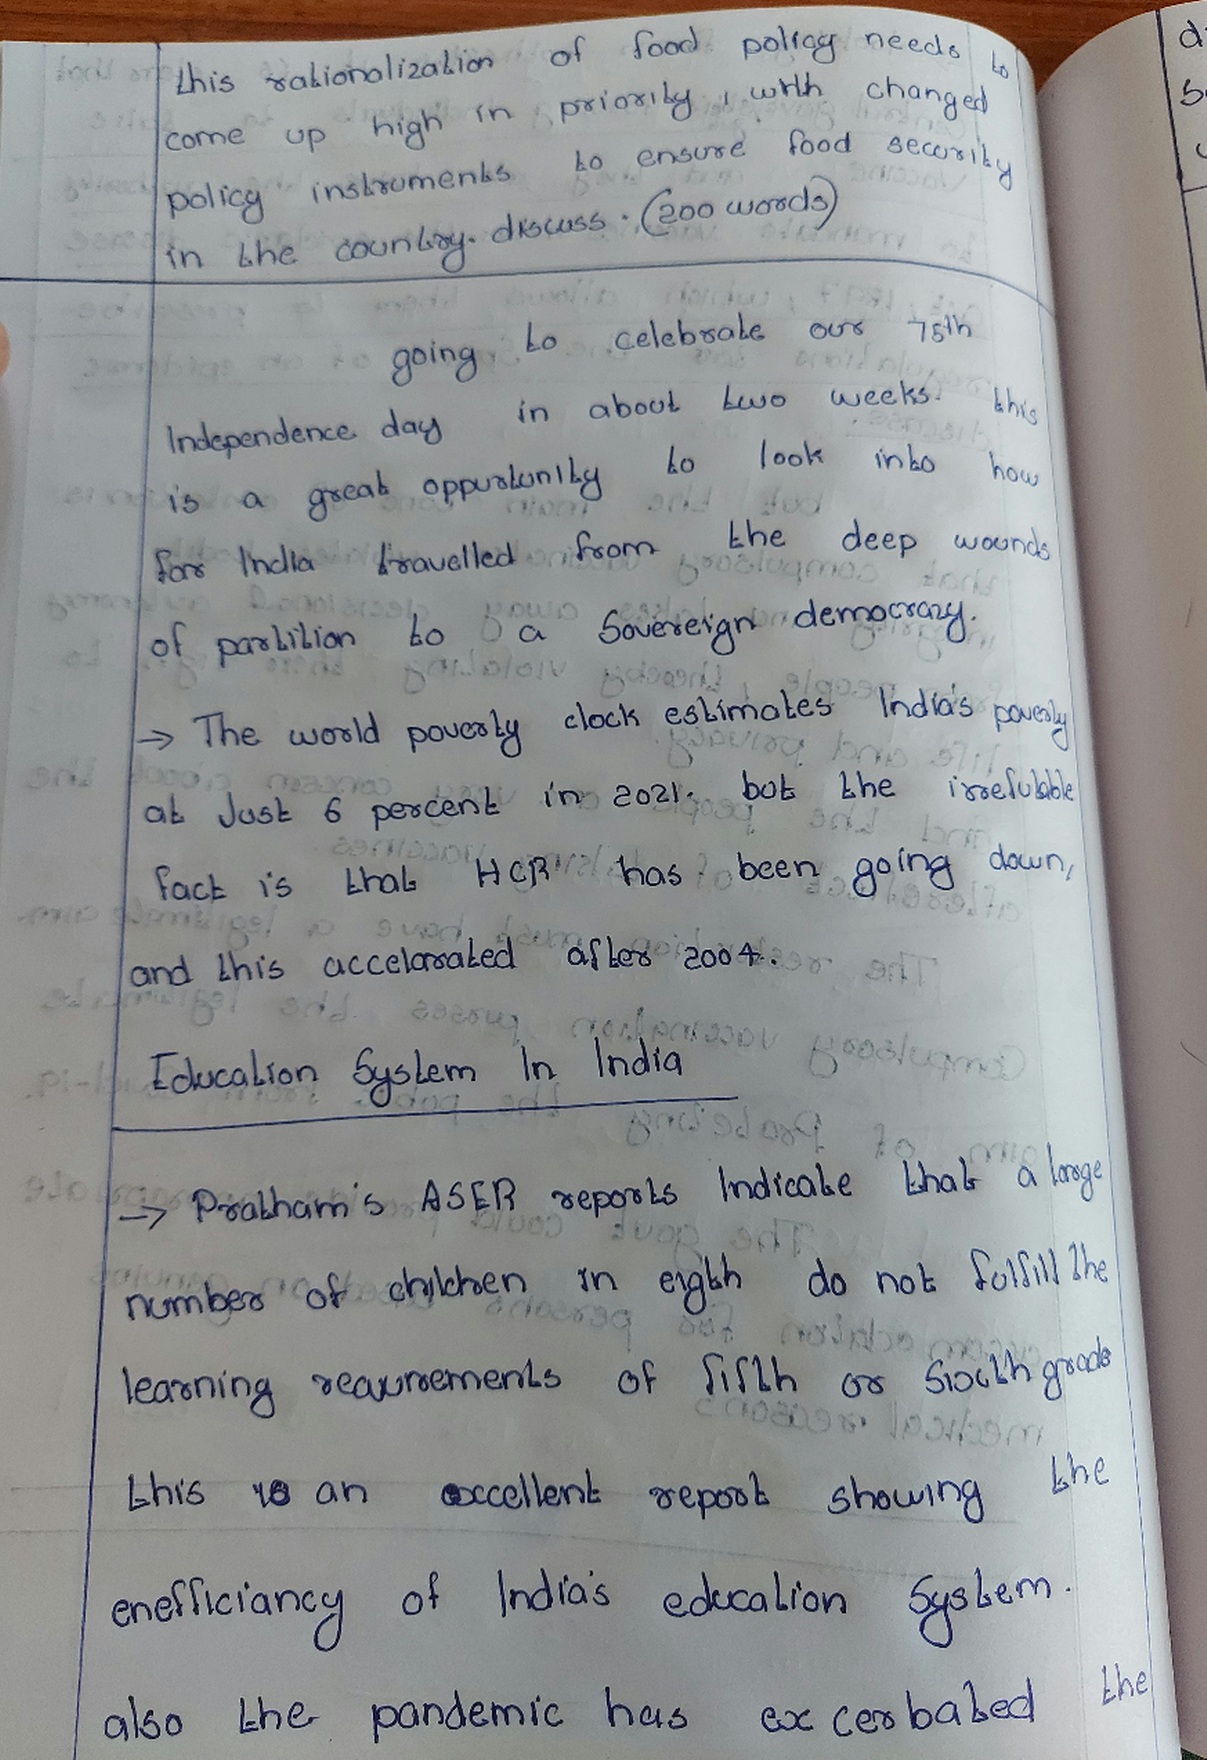 this rationalization of food policy needs to
come up high in priority, with changed
policy instruments to ensure food security
in the country. discuss. (200 words)
going to celebrate our 75th
Independence day in about two weeks. this
is a great oppurtunity to look into how
far India travelled from the deep wounds
of partition to a Sovereign democrazy.
→ The world poverty clock estimates India's poverty
at Just 6 percent in 2021. but the irrefutable
fact is that HCR has been going down,
and this accelarated after 2004.
Education System In India
→ Pratham's ASER reports Indicate that a large
number of children in eigth do not fulfill the
learning requirements of fifth or Sixth grade
this is an excellent report showing the
enefficiancy of India's education System.
also the pandemic has excerbated the
d
S